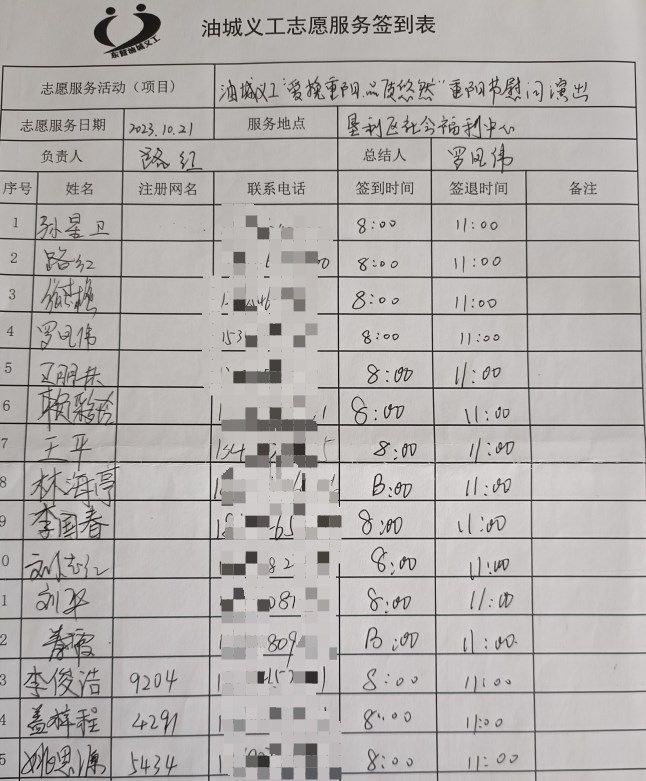 东营油城义工
油城义工志愿服务签到表
志愿服务活动（项目） 油城义工"爱挽重阳.品度悠然"重阳节慰问演出
志愿服务日期 2023.10.21 服务地点 垦利区社会福利中心
负责人 路红 总结人 罗凤伟
序号 姓名 注册网名 联系电话 签到时间 签退时间 备注
1 孙星卫 8:00 11:00
2 路红 0 8:00 11:00
3 8:00 11:00
4 罗凤伟 153 8:00 11:00
5 王朋 8:00 11:00
6 赖 8:00 11:00
7 王平 8:00 11:00
8 林海亭 8:00 11:00
9 李国春 65 8:00 11:00
0 刘志红 82 8:00 11:00
1 刘平 081 8:00 11:00
2 春霞 809 8:00 11:00
3 李俊浩 9204 8:00 11:00
4 盖祥程 4291 8:00 11:00
5 姚思源 5434 8:00 11:00